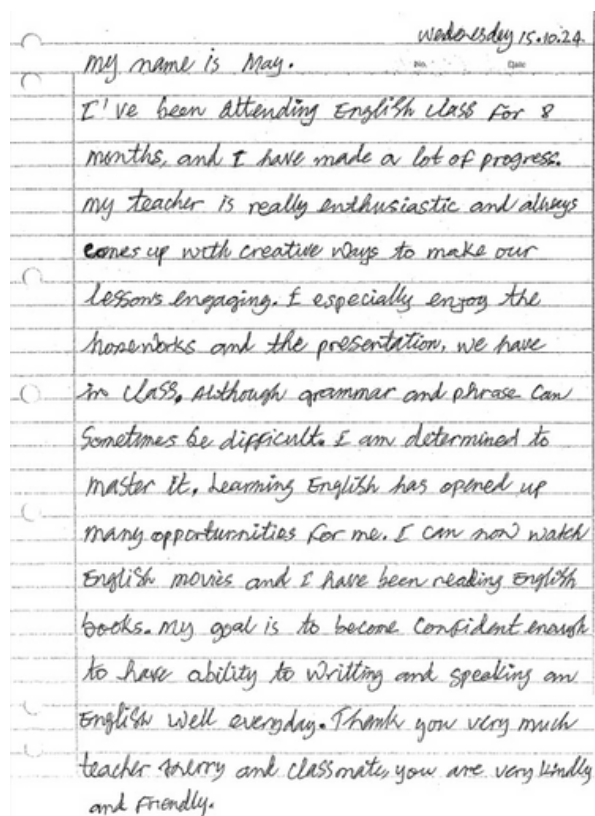 Wednesday 15.10.24
No. Date
my name is May.
I've been attending English class for 8
months, and I have made a lot of progress.
my teacher is really enthusiastic and always
comes up with creative ways to make our
lessons engaging. I especially enjoy the
homeworks and the presentation, we have
in class. Although grammar and phrase can
sometimes be difficult. I am determined to
master it. Learning English has opened up
many opporturnities for me. I can now watch
English movies and I have been reading English
books. my goal is to become confident enough
to have ability to writting and speaking an
English well everyday. Thank you very much
teacher and classmate, you are very kindly
and Friendly.